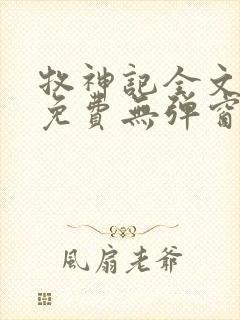 牧神記全文
免費無彈窗
風扇老爺